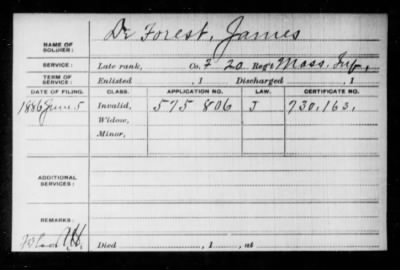 De Forest, James
NAME OF
SOLDIER:
SERVICE: Late rank, Co. F 20 Reg't Mass. Inf.,
TERM OF
SERVICE: Enlisted , 1 Discharged , 1
DATE OF FILING. CLASS. APPLICATION NO. LAW. CERTIFICATE NO.
1886 June 5 Invalid, 575 806 J 730,163.
Widow,
Minor,
ADDITIONAL
SERVICES:
REMARKS:
Died , 1 , at